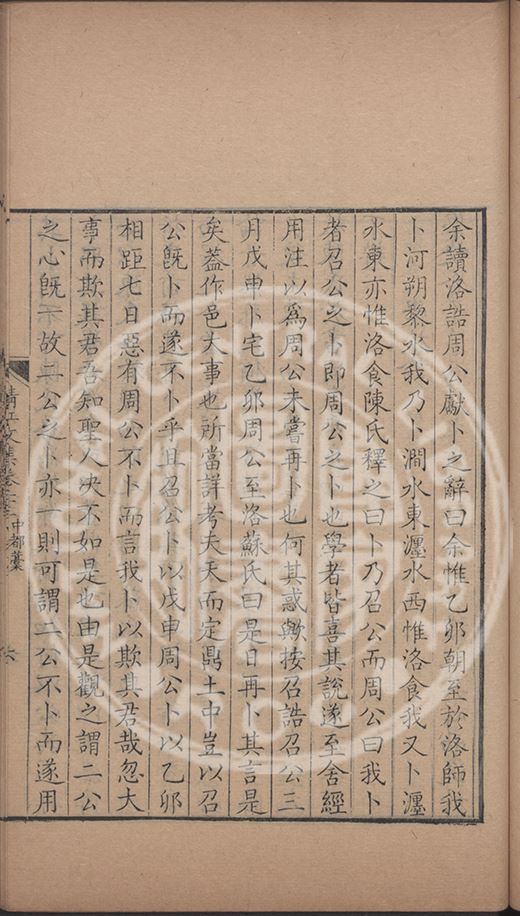 余讀洛誥周公獻卜之辭曰余惟乙卯朝至於洛師我
卜河朔黎水我乃卜澗水東瀍水西惟洛食我又卜瀍
水東亦惟洛食陳氏釋之曰卜乃召公而周公曰我卜
者召公之卜即周公之卜也學者皆喜其說遂至舍經
用注以爲周公未嘗再卜也何其惑歟按召誥召公三
月戊申卜宅乙卯周公至洛蘇氏曰是日再卜其言是
矣蓋作邑大事也所當詳考夫天而定鼎土中豈以召
公旣卜而遂不卜乎且召公卜以戊申周公卜以乙卯
相距七日惡有周公不卜而言我卜以欺其君哉忽大
事而欺其君吾知聖人决不如是也由是觀之謂二公
之心旣一故二公之卜亦一則可謂二公不卜而遂用
清江文集卷
中都藁
六